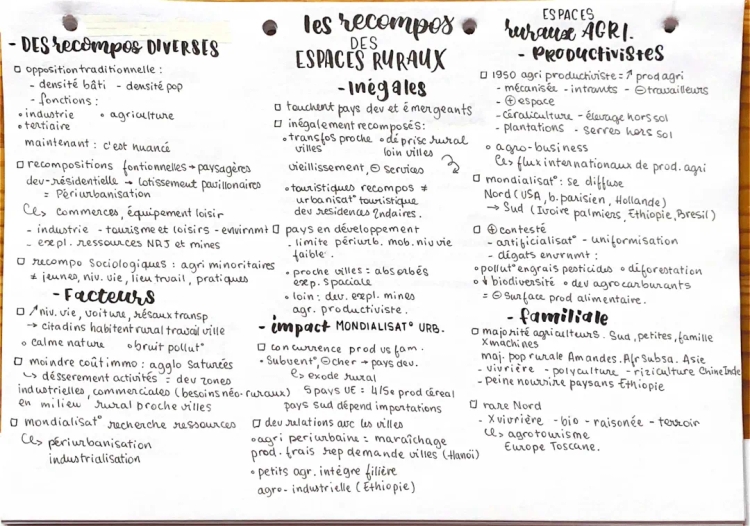 les recompos
DES
ESPACES RURAUX
- DES recompos DIVERSES
□ opposition traditionnelle :
- densité bâti - densité pop
- fonctions :
∘ industrie ∘ agriculture
∘ tertiaire
maintenant : c'est nuancé
□ recompositions fontionnelles → paysagères
dev-résidentielle → lotissement pavillonaires
= Périurbanisation
↳ commerces, équipement loisir
- industrie - tourisme et loisirs - envirnmt
- expl. ressources NRJ et mines
□ recompo sociologiques : agri minoritaires
≠ jeunes, niv. vie, lieu travail, pratiques
- Facteurs
□ ↗ niv. vie, voiture, réseaux transp
→ citadins habitent rural travail ville
∘ calme nature ∘ bruit pollut°
□ moindre coût immo : agglo saturées
↳ désserement activités = dev zones
industrielles, commerciales (besoins néo-ruraux)
en milieu rural proche villes
□ mondialisat° recherche ressources
↳ périurbanisation
industrialisation
- Inégales
□ touchent pays dev et émergeants
□ inégalement recomposés :
∘ transfos proche villes ∘ déprise rural loin villes
vieillissement, ⊖ services
∘ touristiques recompos ≠
urbanisat° touristique
des residences 2ndaires.
□ pays en développement
- limite périurb. mob. niv vie
faible.
∘ proche villes = absorbés
exp. spaciale
∘ loin : dev. expl. mines
agr. productiviste.
- impact MONDIALISAT° URB.
□ concurrence prod vs fam.
∘ Subvent°, ⊖ cher → pays dev.
↳ exode rural
5 pays UE = 4/5e prod céreal
pays sud dépend importations
□ dev relations avc les villes
∘ agri periurbaine = maraîchage
prod. frais rep demande villes (Hanoï)
∘ petits agr. intègre filière
agro-industrielle (Ethiopie)
ESPACES
ruraux AGRI.
- PRODUCTIVISTES
□ 1950 agri productiviste = ↗ prod agri
- mécanisée - intrants - ⊖ travailleurs
- ⊕ espace
- céraliculture - élevage hors sol
- plantations - serres hors sol
∘ agro-business
↳ flux internationaux de prod. agri
□ mondialisat° : se diffuse
Nord (USA, b. parisien, Hollande)
→ Sud (Ivoire palmiers, Ethiopie, Bresil)
□ ⊕ contesté
- artificialisat° - uniformisation
- dégats envrnmt :
∘ pollut° engrais pesticides ∘ déforestation
∘ ↓ biodiversité ∘ dev agrocarburants
= ⊖ surface prod alimentaire.
- familiale
□ majorité agriculteurs. Sud, petites, famille
X machines
maj. pop rurale Amandes. Afr Subsa. Asie
- vivrière - polyculture - riziculture Chine Inde
- peine nourrire paysans Ethiopie
□ rare Nord
- X vivrière - bio - raisonée - terroir
↳ agrotourisme
Europe Toscane.